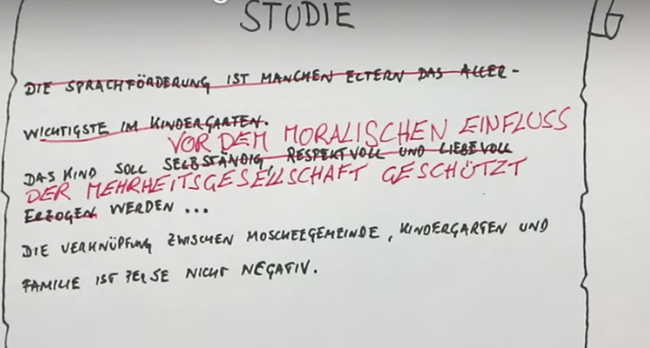 STUDIE
DIE SPRACHFÖRDERUNG IST MANCHEN ELTERN DAS ALLER-
WICHTIGSTE IM KINDERGARTEN.
VOR DEM MORALISCHEN EINFLUSS
DAS KIND SOLL SELBSTÄNDIG, RESPEKTVOLL UND LIEBEVOLL
DER MEHRHEITSGESELLSCHAFT GESCHÜTZT
ERZOGEN WERDEN ...
DIE VERKNÜPFUNG ZWISCHEN MOSCHEEGEMEINDE, KINDERGARTEN UND
FAMILIE IST PER SE NICHT NEGATIV.